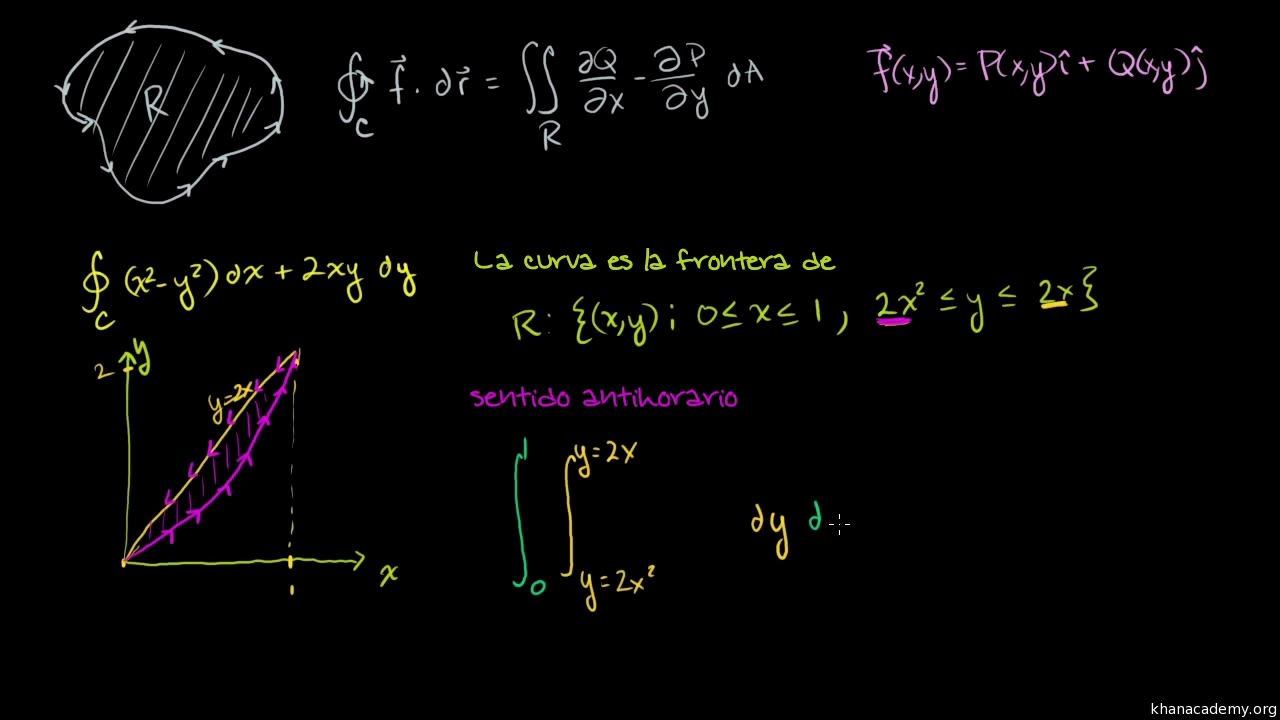 R
∮_C f⃗ · dr⃗ = ∬_R ∂Q/∂x - ∂P/∂y dA
f⃗(x,y) = P(x,y)î + Q(x,y)ĵ
∮_C (x² - y²) dx + 2xy dy
La curva es la frontera de
R: {(x,y); 0 ≤ x ≤ 1, 2x² ≤ y ≤ 2x}
2 y
y=2x
x
1
sentido antihorario
1 y=2x
dy d
0 y=2x²
khanacademy.org